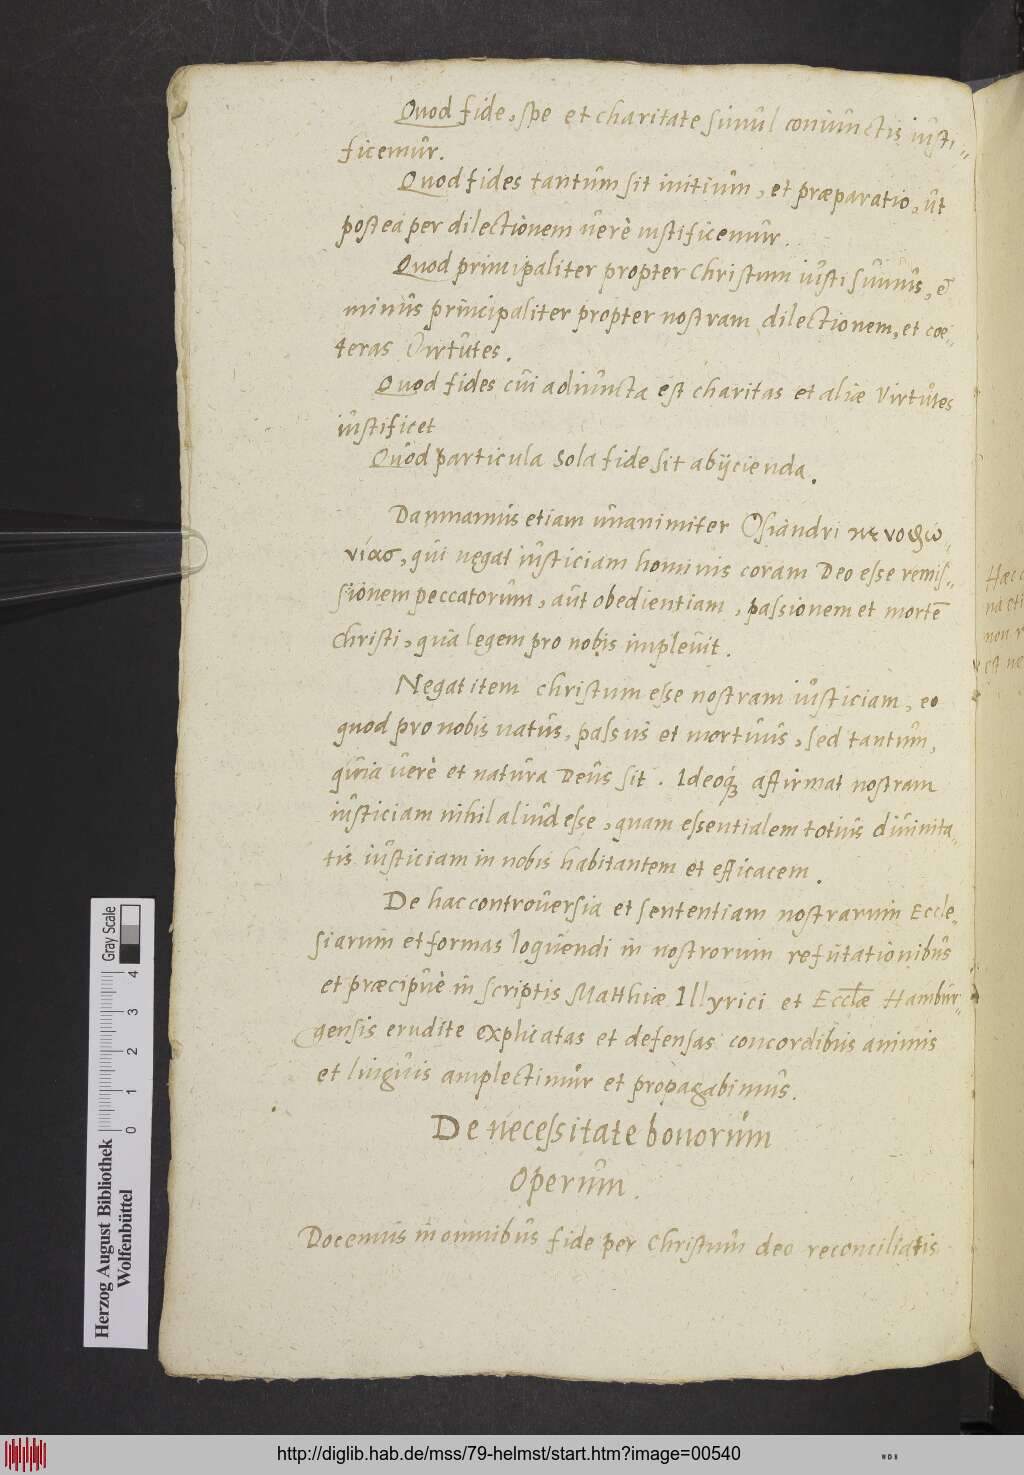 Quod fide, spe et charitate simul coniunctis iusti-
ficemur.
Quod fides tantum sit initium, et præparatio, ut
postea per dilectionem uerè iustificemur.
Quod principaliter propter Christum iusti simus, &
minus principaliter propter nostram dilectionem, et cœ-
teras Virtutes.
Quod fides cui adiuncta est charitas et aliæ Virtutes
iustificet
Quod particula Sola fide sit abijcienda.
Damnamus etiam unanimiter Osiandri
νίας, qui negat iusticiam hominis coram Deo esse remis-
sionem peccatorum, aut obedientiam, passionem et mortē
Christi, qua legem pro nobis impleuit.
Negat item christum esse nostram iusticiam, eo
quod pro nobis natus, passus et mortuus, sed tantum,
quia uerè et natura Deus sit. Ideoqꝫ affirmat nostram
iusticiam nihil aliud esse, quam essentialem totius diuinita-
tis iusticiam in nobis habitantem et efficacem.
De hac controuersia et sententiam nostrarum Eccle-
siarum et formas loquendi in nostrorum refutationibus
et præcipuè in scriptis Matthiæ Illyrici et Eccłæ Hambur-
gensis erudite explicatas et defensas concordibus animis
et linguis amplectimur et propagabimus.
De necessitate bonorum
Operum.
Docemus in omnibus fide per Christum deo reconciliatis
Gray Scale
0 1 2 3 4
Herzog August Bibliothek
Wolfenbüttel
http://diglib.hab.de/mss/79-helmst/start.htm?image=00540
WDB